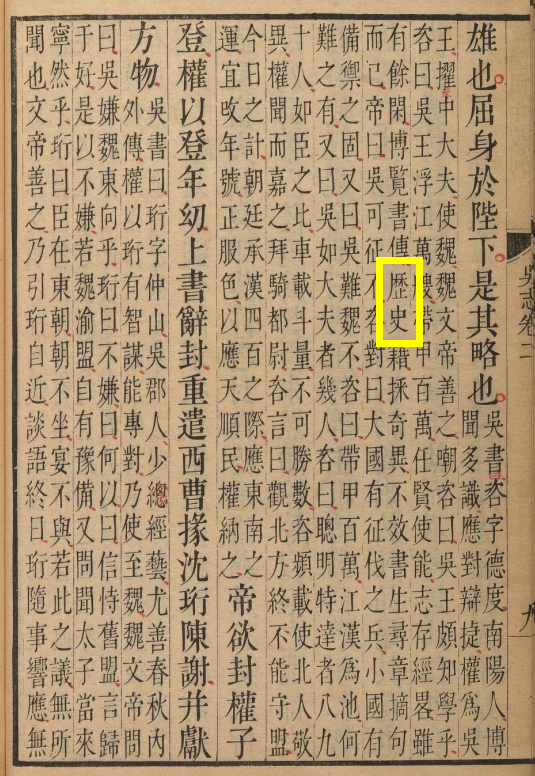 吳志卷二
九
雄也屈身於陛下是其略也
吳書咨字德度南陽人博
聞多識應對辯捷權為吳
王擢中大夫使魏魏文帝善之嘲咨曰吳王頗知學乎
咨曰吳王浮江萬艘帶甲百萬任賢使能志存經畧雖
有餘閑博覽書傳歷史藉採奇異不效書生尋章摘句
而已帝曰吳可征不咨對曰大國有征伐之兵小國有
備禦之固又曰吳難魏不咨曰帶甲百萬江漢為池何
難之有又曰吳如大夫者幾人咨曰聰明特達者八九
十人如臣之比車載斗量不可勝數咨頻載使北人敬
異權聞而嘉之拜騎都尉咨言曰觀北方終不能守盟
今日之計朝廷承漢四百之際應東南之
運宜改年號正服色以應天順民權納之
帝欲封權子
登權以登年幼上書辭封重遣西曹掾沈珩陳謝并獻
方物
吳書曰珩字仲山吳郡人少總經藝尤善春秋內
外傳權以珩有智謀能專對乃使至魏魏文帝問
曰吳嫌魏東向乎珩曰不嫌曰何以曰信恃舊盟言歸
于好是以不嫌若魏渝盟自有豫備又問聞太子當來
寧然乎珩曰臣在東朝朝不坐宴不與若此之議無所
聞也文帝善之乃引珩自近談語終日珩隨事響應無